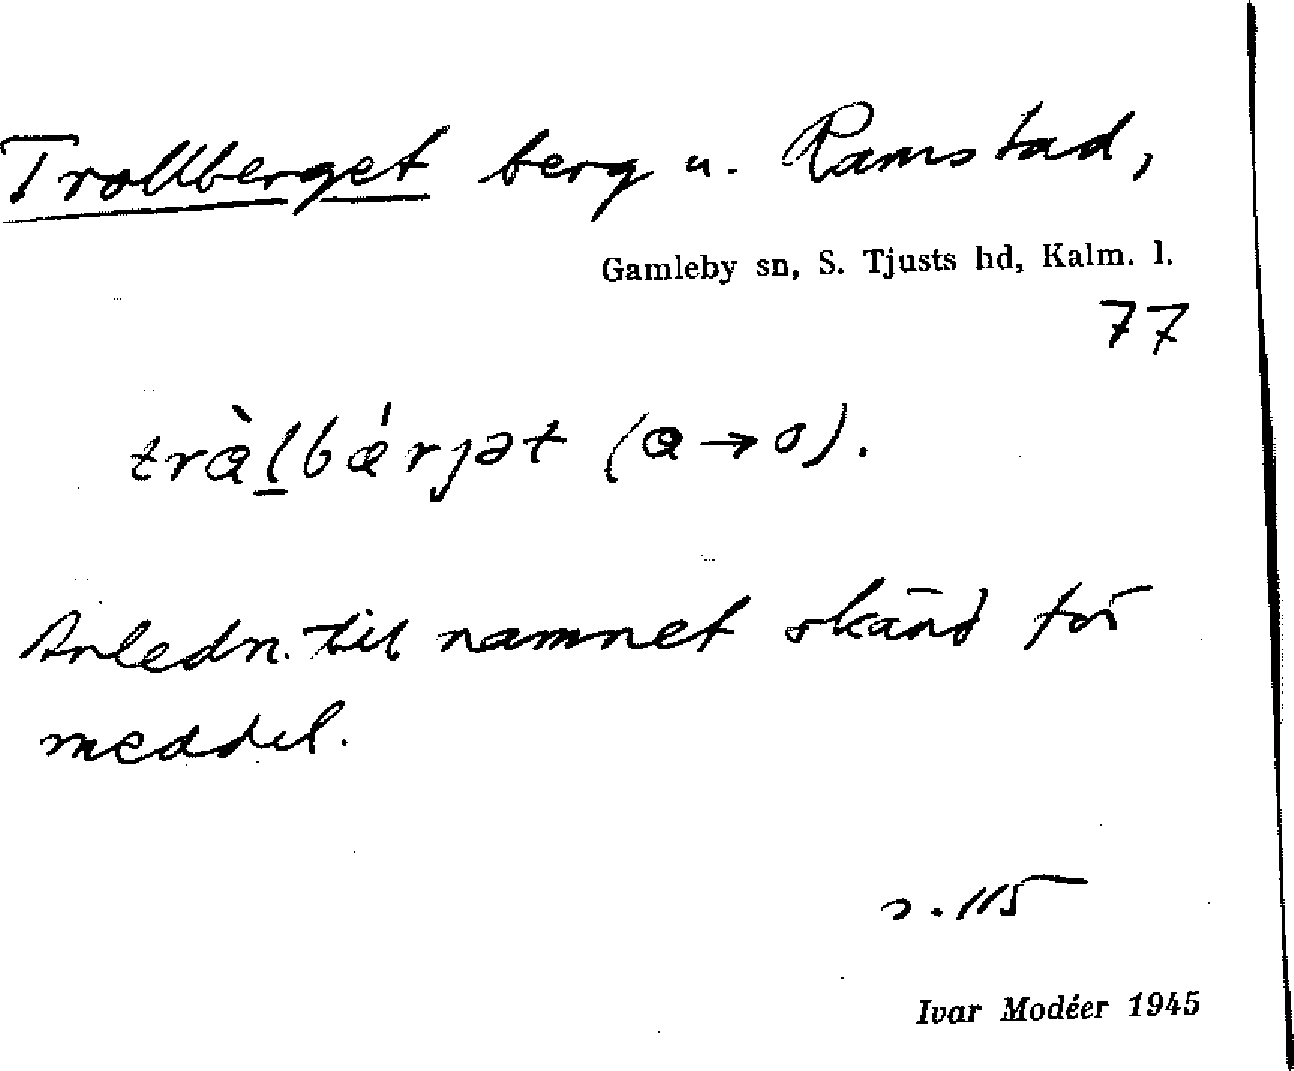 Trollberget berg u. Ramstad,
Gamleby sn, S. Tjusts hd, Kalm. l.
77
tràl̠bǽrjət (a → o).
Anledn. till namnet okänd för
meddel.
s. 115
Ivar Modéer 1945